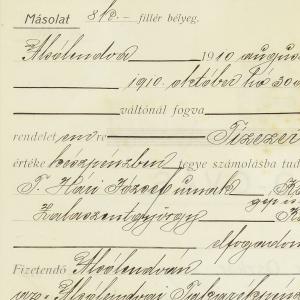 Másolat 8 k.- fillér bélyeg.
Alsólendva 1910 augusz
1910. október hó 30á
váltónál fogva
rendelet en re Tízezer
értéke készpénzben tegye számolásba tud
T. Hári József úrnak
Zalaszentgyörgy
elfogadom
Fizetendő Alsólendván
az: Alsólendvai Takarékpénz